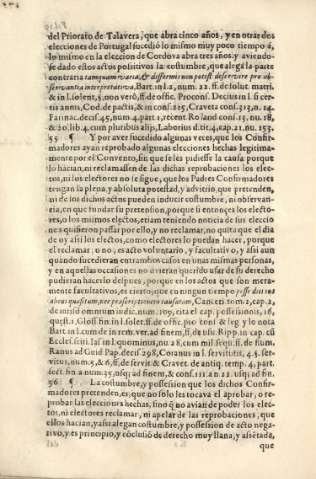 del Priorato de Talavera, que abra cinco años, y en otras dos
elecciones de Portugal sucedió lo mismo muy poco tiempo á,
lo mismo en la eleccion de Cordova abra tres años, y aviendo-
se dado estos actos possitivos la costumbre, que alega la parte
contraria tamquam varia, & difformis non potest deservire pro ob-
servantia interpretativa, Bart. in l. 2, num. 22. ff. de solut. matri.
& in l. solent, ff. de offic. Proconf. Decius in l. si cer-
tis annis, Cod. de pactis, & in conf. 225, Craveta conf. 313, n. 14.
Farinac. decif. 45, num. 4. part. 1. recent. Roland conf. 13. nu. 18,
& 20. lib. 4. cum pluribus alijs, Laborius d. tit. 4, cap. 21. nu. 153.
55 ¶ Y por aver sucedido algunas veces, que los Confir-
madores ayan reprobado algunas elecciones hechas legitima-
mente por el Convento, sin que se les pidiesse la causa porque
lo hacian, ni reclamassen de las dichas reprobaciones los elec-
tos, ni los electores no se sigue, que los Padres Confirmadores
tengan la plena, y absoluta potestad, y advitrio, que pretenden,
ni de los dichos actos pueden inducir costumbre, ni observan-
cia, en que fundar su pretension, porque si entonces los electo-
res, o los mismos electos, etiam teniendo noticia de sus eleccio
nes quisieron passar por ello, y no reclamar, no quita que el dia
de oy assi los electos, como electores lo puedan hacer, porque
el reclamar, o no, es acto voluntario, y facultativo, y assi aun
quando sucedieran entrambos casos en unas mismas personas,
y en aquellas occasiones no uvieran querido usar de su derecho
pudieran hacerlo despues, porque en los actos que son mera-
mente facultativos, es cierto, que en ningun tiempo posse dari
abusu quæsitum, nec præscriptionem causatam, Canceri. tom. 2, cap. 2,
de missio omnium indic. num. 109, cita el cap. possessionis, 16,
quæst. 1, Gloss. fin in l. solet. ff. de offic. pro conf. & leg. y lo nota
Bart. in l. cum de in rem. ver. ad finem, ff. de usu. Ripp. in cap. cù
Ecclesia sit. las in l. quominus, nu. 28, cum mil. sequ. ff. de flum.
Ranus ad Guid Pap. decif. 298, Coranus in l. servitutes, 4. §. ser-
vitus, num. 5, & 6, ff. de servit. & Cravet. de antiq. temp. 4. part.
sect. fin a num. 35, usq; ad finem, & conf. 111. an. 12. usq; ad fin.
56 ¶ La costumbre, y possession que los dichos Confir-
madores pretenden, es, que no solo les tocava el aprobar, o re-
probar las elecciones hechas, sino q̄ no avian de poder los elec-
tos, ni electores reclamar, ni apelar de las reprobaciones, que
ellos hacian, y assi alegan costumbre, y possession de acto nega-
tivo, y es principio, y cōclusiō de derecho muy llana, y assetada,
que